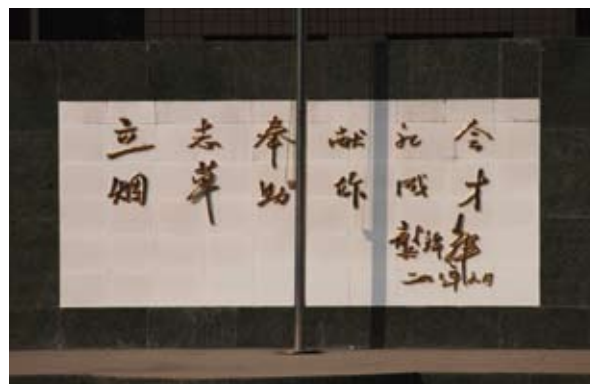 立志奉献社会
烟草助你成才